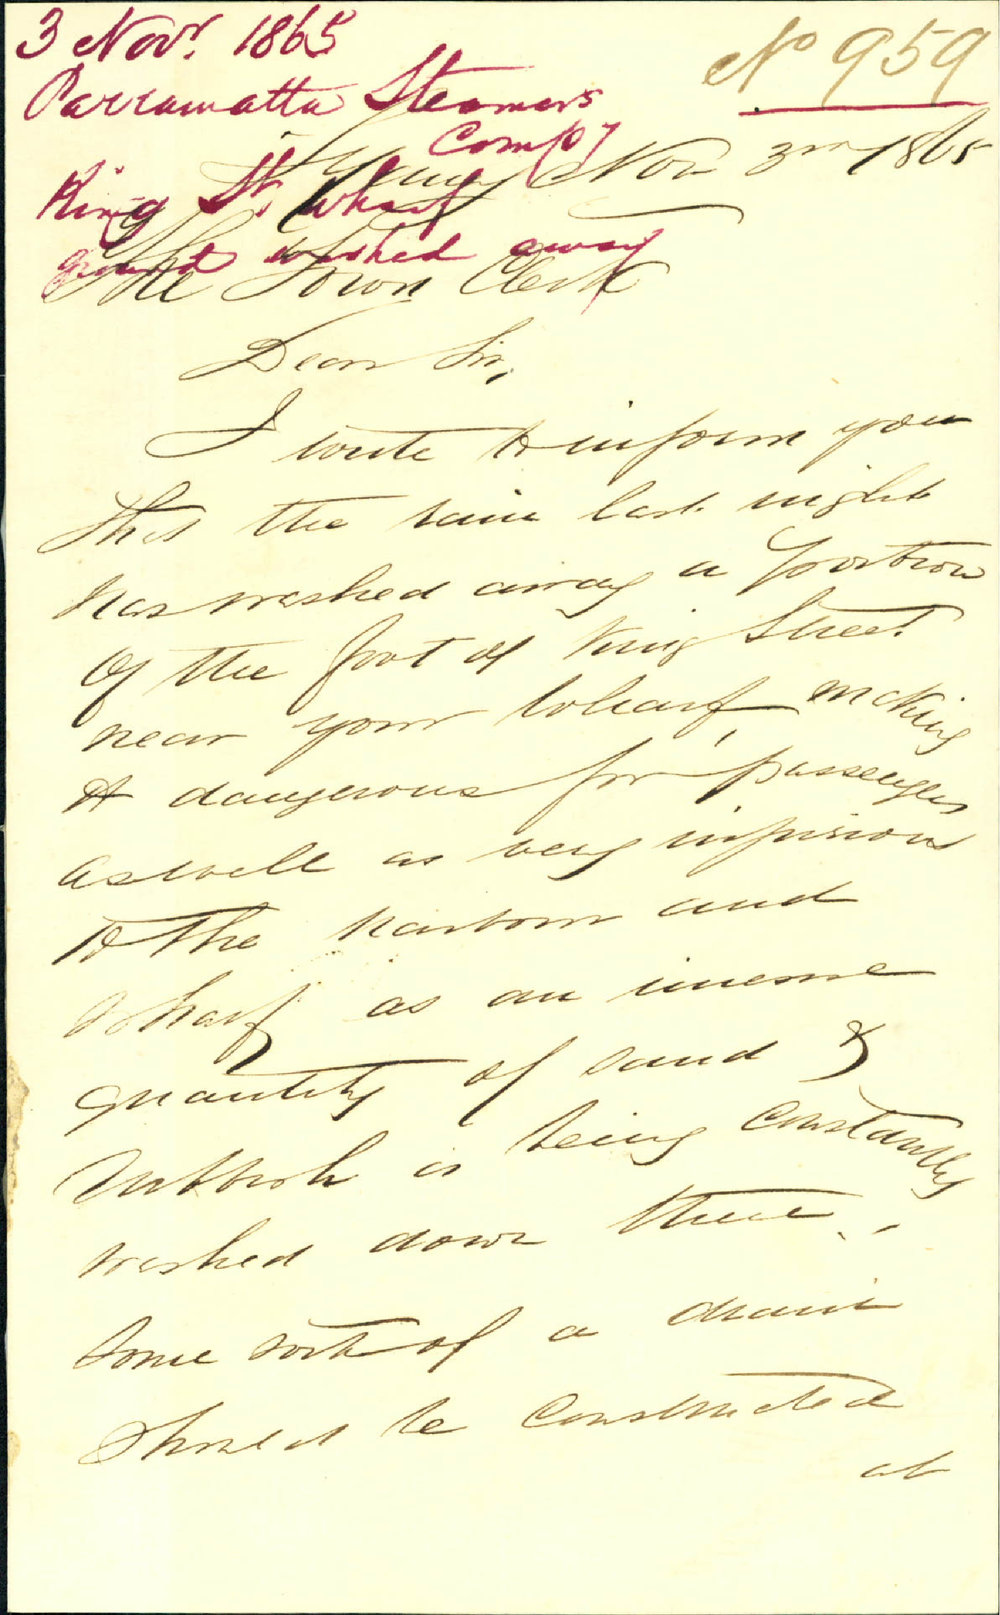 3 Novr. 1865
No 959
Parramatta Steamers
Compy
King St. Wharf
ground washed away
Nov 3rd 1865
The Town Clerk
Dear Sir,
I write to inform you
that the rain last night
has washed away a portion
of the foot of King Street
near your Wharf, making
it dangerous for passengers
as well as very injurious
to the harbour and
wharf as an imense
quantity of sand &
rubbish is being constantly
washed down there.,
Some sort of a drain
should be constructed
at